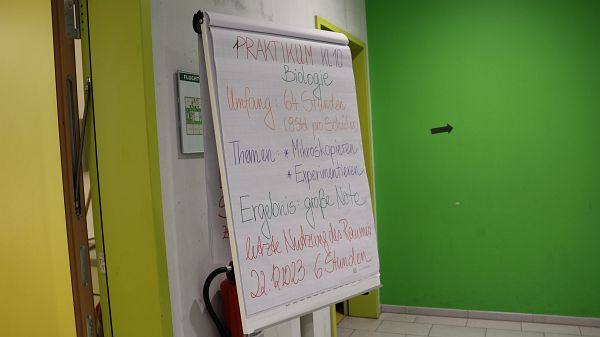 PRAKTIKUM KL10
Biologie
Umfang: 64 Stunden
(8Std. pro Schüler)
Themen: * Mikroskopieren
* Experimentieren
Ergebnis: große Note
letzte Nutzung des Raumes
22.12023 6 Stunden
FLUCHT